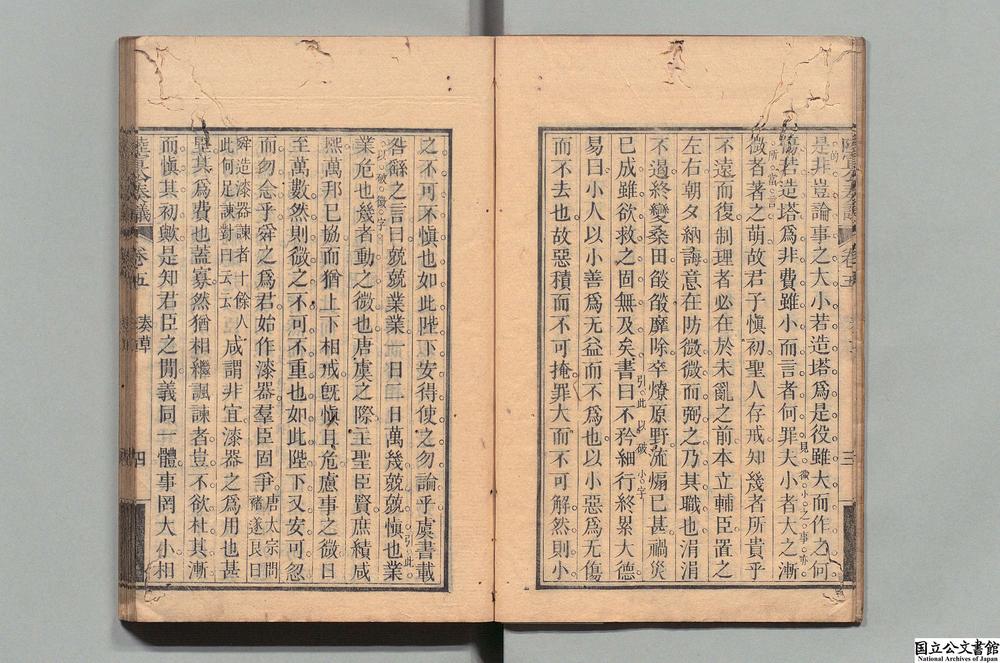 是非豈論事之大小若造塔爲是役雖大而作之何
傷若造塔爲非費雖小而言者何罪夫小者大之漸
微者著之萌故君子愼初聖人存戒知幾者所貴乎
不遠而復制理者必在於未亂之前本立輔臣置之
左右朝夕納誨意在防微微而弼之乃其職也涓涓
不遏終變桑田燄燄靡除卒燎原野流煽已甚禍災
已成雖欲救之固無及矣書曰不矜細行終累大德
易曰小人以小善爲无益而不爲也以小惡爲无傷
而不去也故惡積而不可掩罪大而不可解然則小
見微小之事亦
所當言
引此以破小字
三
之不可不愼也如此陛下安得使之勿論乎虞書載
咎繇之言曰兢兢業業一日二日萬幾兢兢愼也業
業危也幾者動之微也唐虞之際主聖臣賢庶績咸
熙萬邦已協而猶上下相戒旣愼且危慮事之微日
至萬數然則微之不可不重也如此陛下又安可忽
而勿念乎舜之爲君始作漆器羣臣固爭唐太宗問褚遂良曰
舜造漆器諫者十餘人此何足諫對曰云云咸謂非宜漆器之爲用也甚
堅其爲費也蓋寡然猶相繼諷諫者豈不欲杜其漸
而愼其初歟是知君臣之閒義同一體事罔大小相
引此
以破微字
陸宣公奏議 卷五 奏草 四
国立公文書館
National Archives of Japan